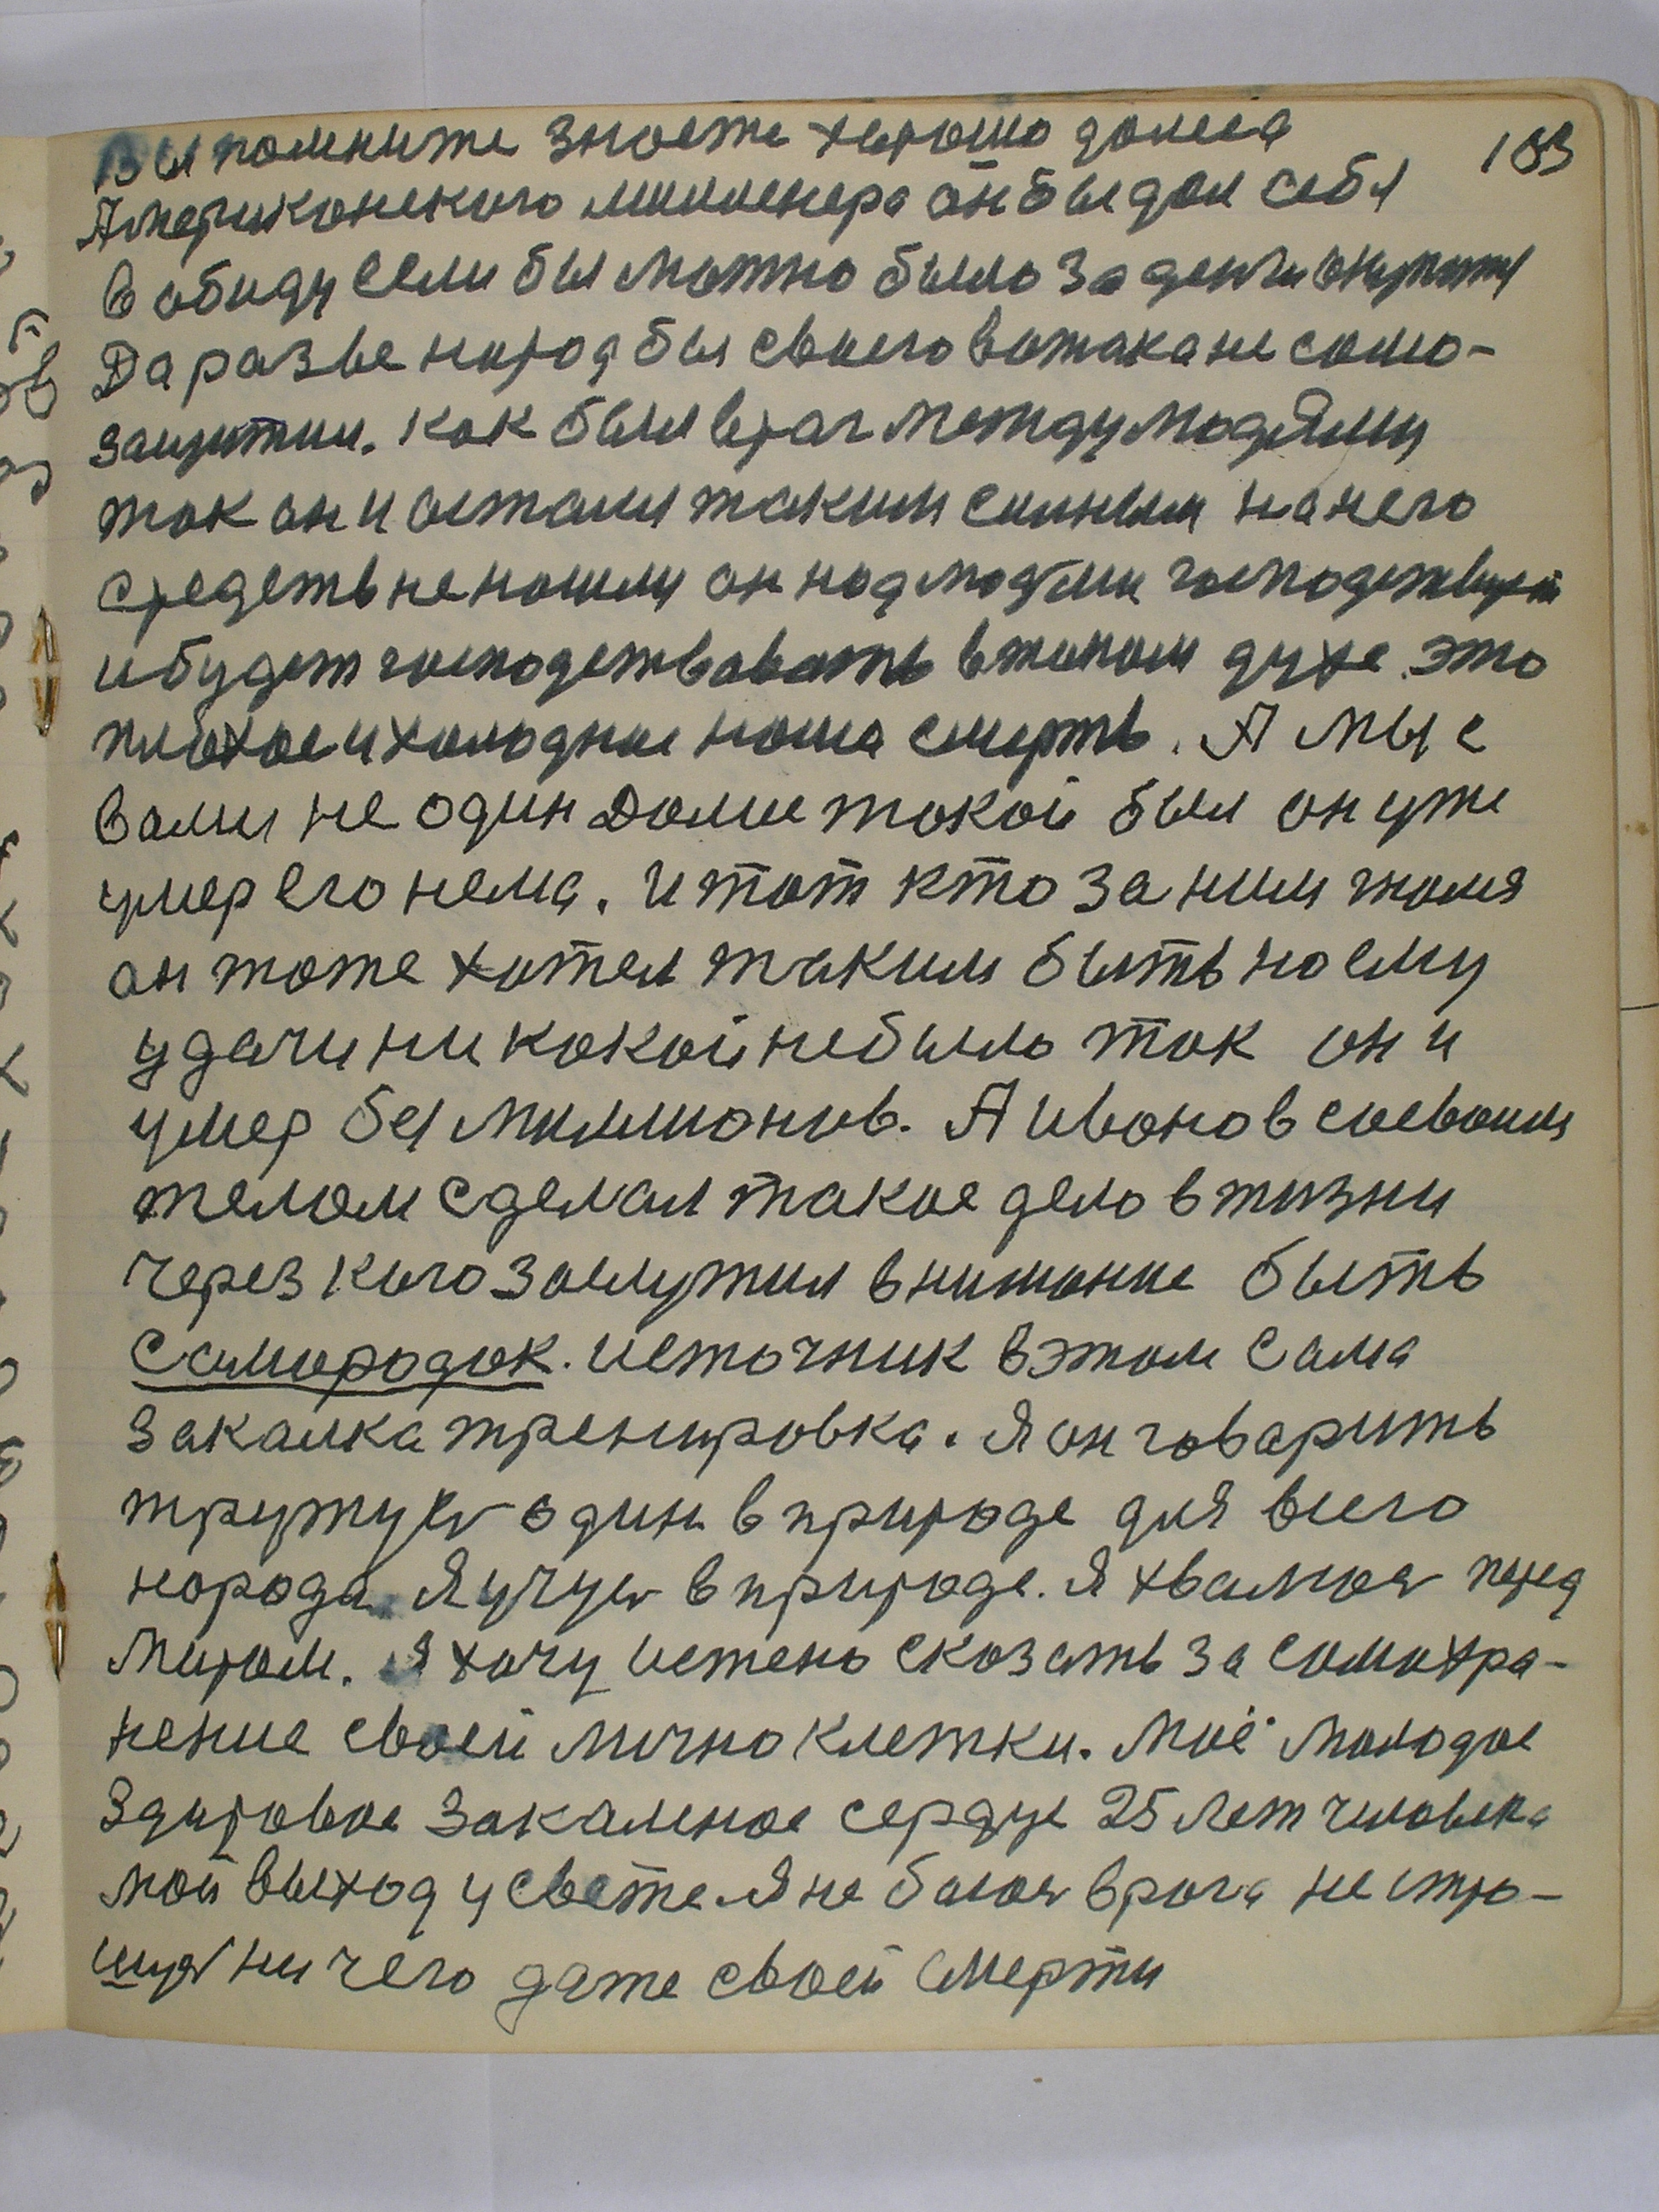 183
Вы помните знаете хорошо далеса
Американского милленера он бы дал себя
в обиду если бы можно было за деньги
Да разве народ бы своего вожака не само-
защитил. как был враг между людьями
так он и остался таким сильным на него
средств не нашли он над людьми господствует
и будет господствовать в таком духе. это
плохое и холодное наша смерть. А мы с
вами не один Далис такой был он уже
умер его нема. и тот кто за ним гнался
он тоже хотел таким быть но ему
удачи ни какой не было так он и
умер без миллионов. А иванов со своим
телом сделал такое дело в жизни
через кого заслужил внимание быть
самородок. источник в этом сама
закалка тренировка. Я он говарить
тружусь один в природе для всего
народа. Я учусь в природе. Я хвалюсь перед
миром. Я хочу истено сказать за самохра-
нение своей лично клетки. Моё молодое
здоровое закаленое сердце 25 лет человека
мой выход у свете. Я не боюсь врага не стра-
шусь ни чего даже своей смерти